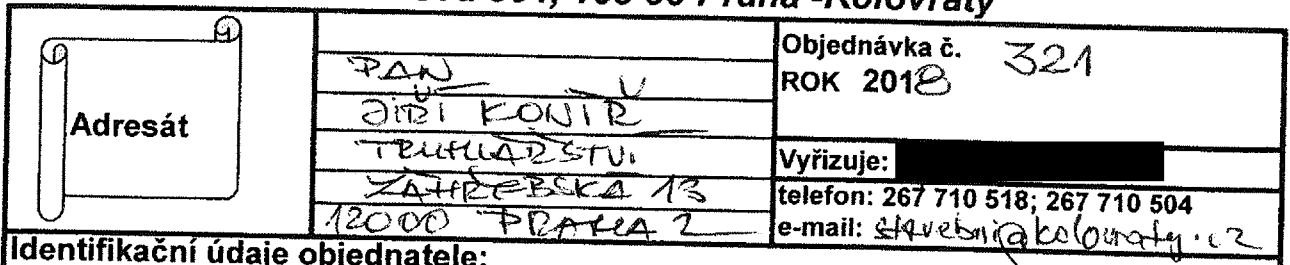 103 00 Praha -Kolovraty
Adresát
PAN
JIŘÍ KONÍŘ
TRUHLÁŘSTVÍ
ZÁHŘEBSKÁ 13
12000 PRAHA 2
Objednávka č. 321
ROK 2018
Vyřizuje:
telefon: 267 710 518; 267 710 504
e-mail: stavebni@kolovraty.cz
Identifikační údaje objednatele: